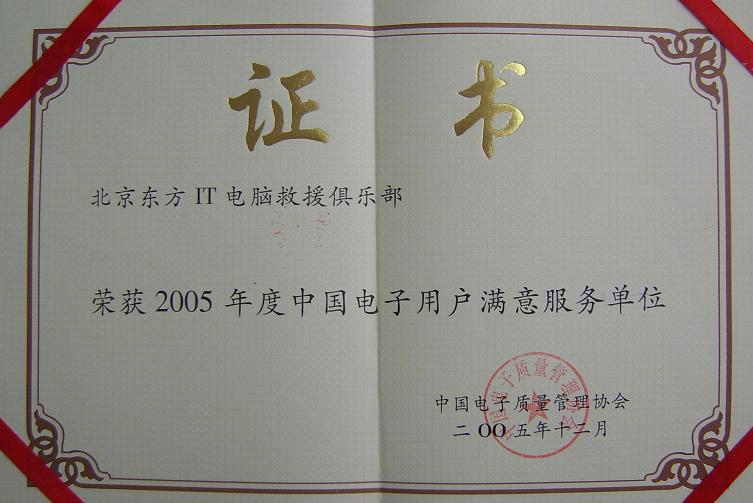 证书
北京东方IT电脑救援俱乐部
荣获2005年度中国电子用户满意服务单位
中国电子质量管理协会
二OO五年十二月
中国电子质量管理协会